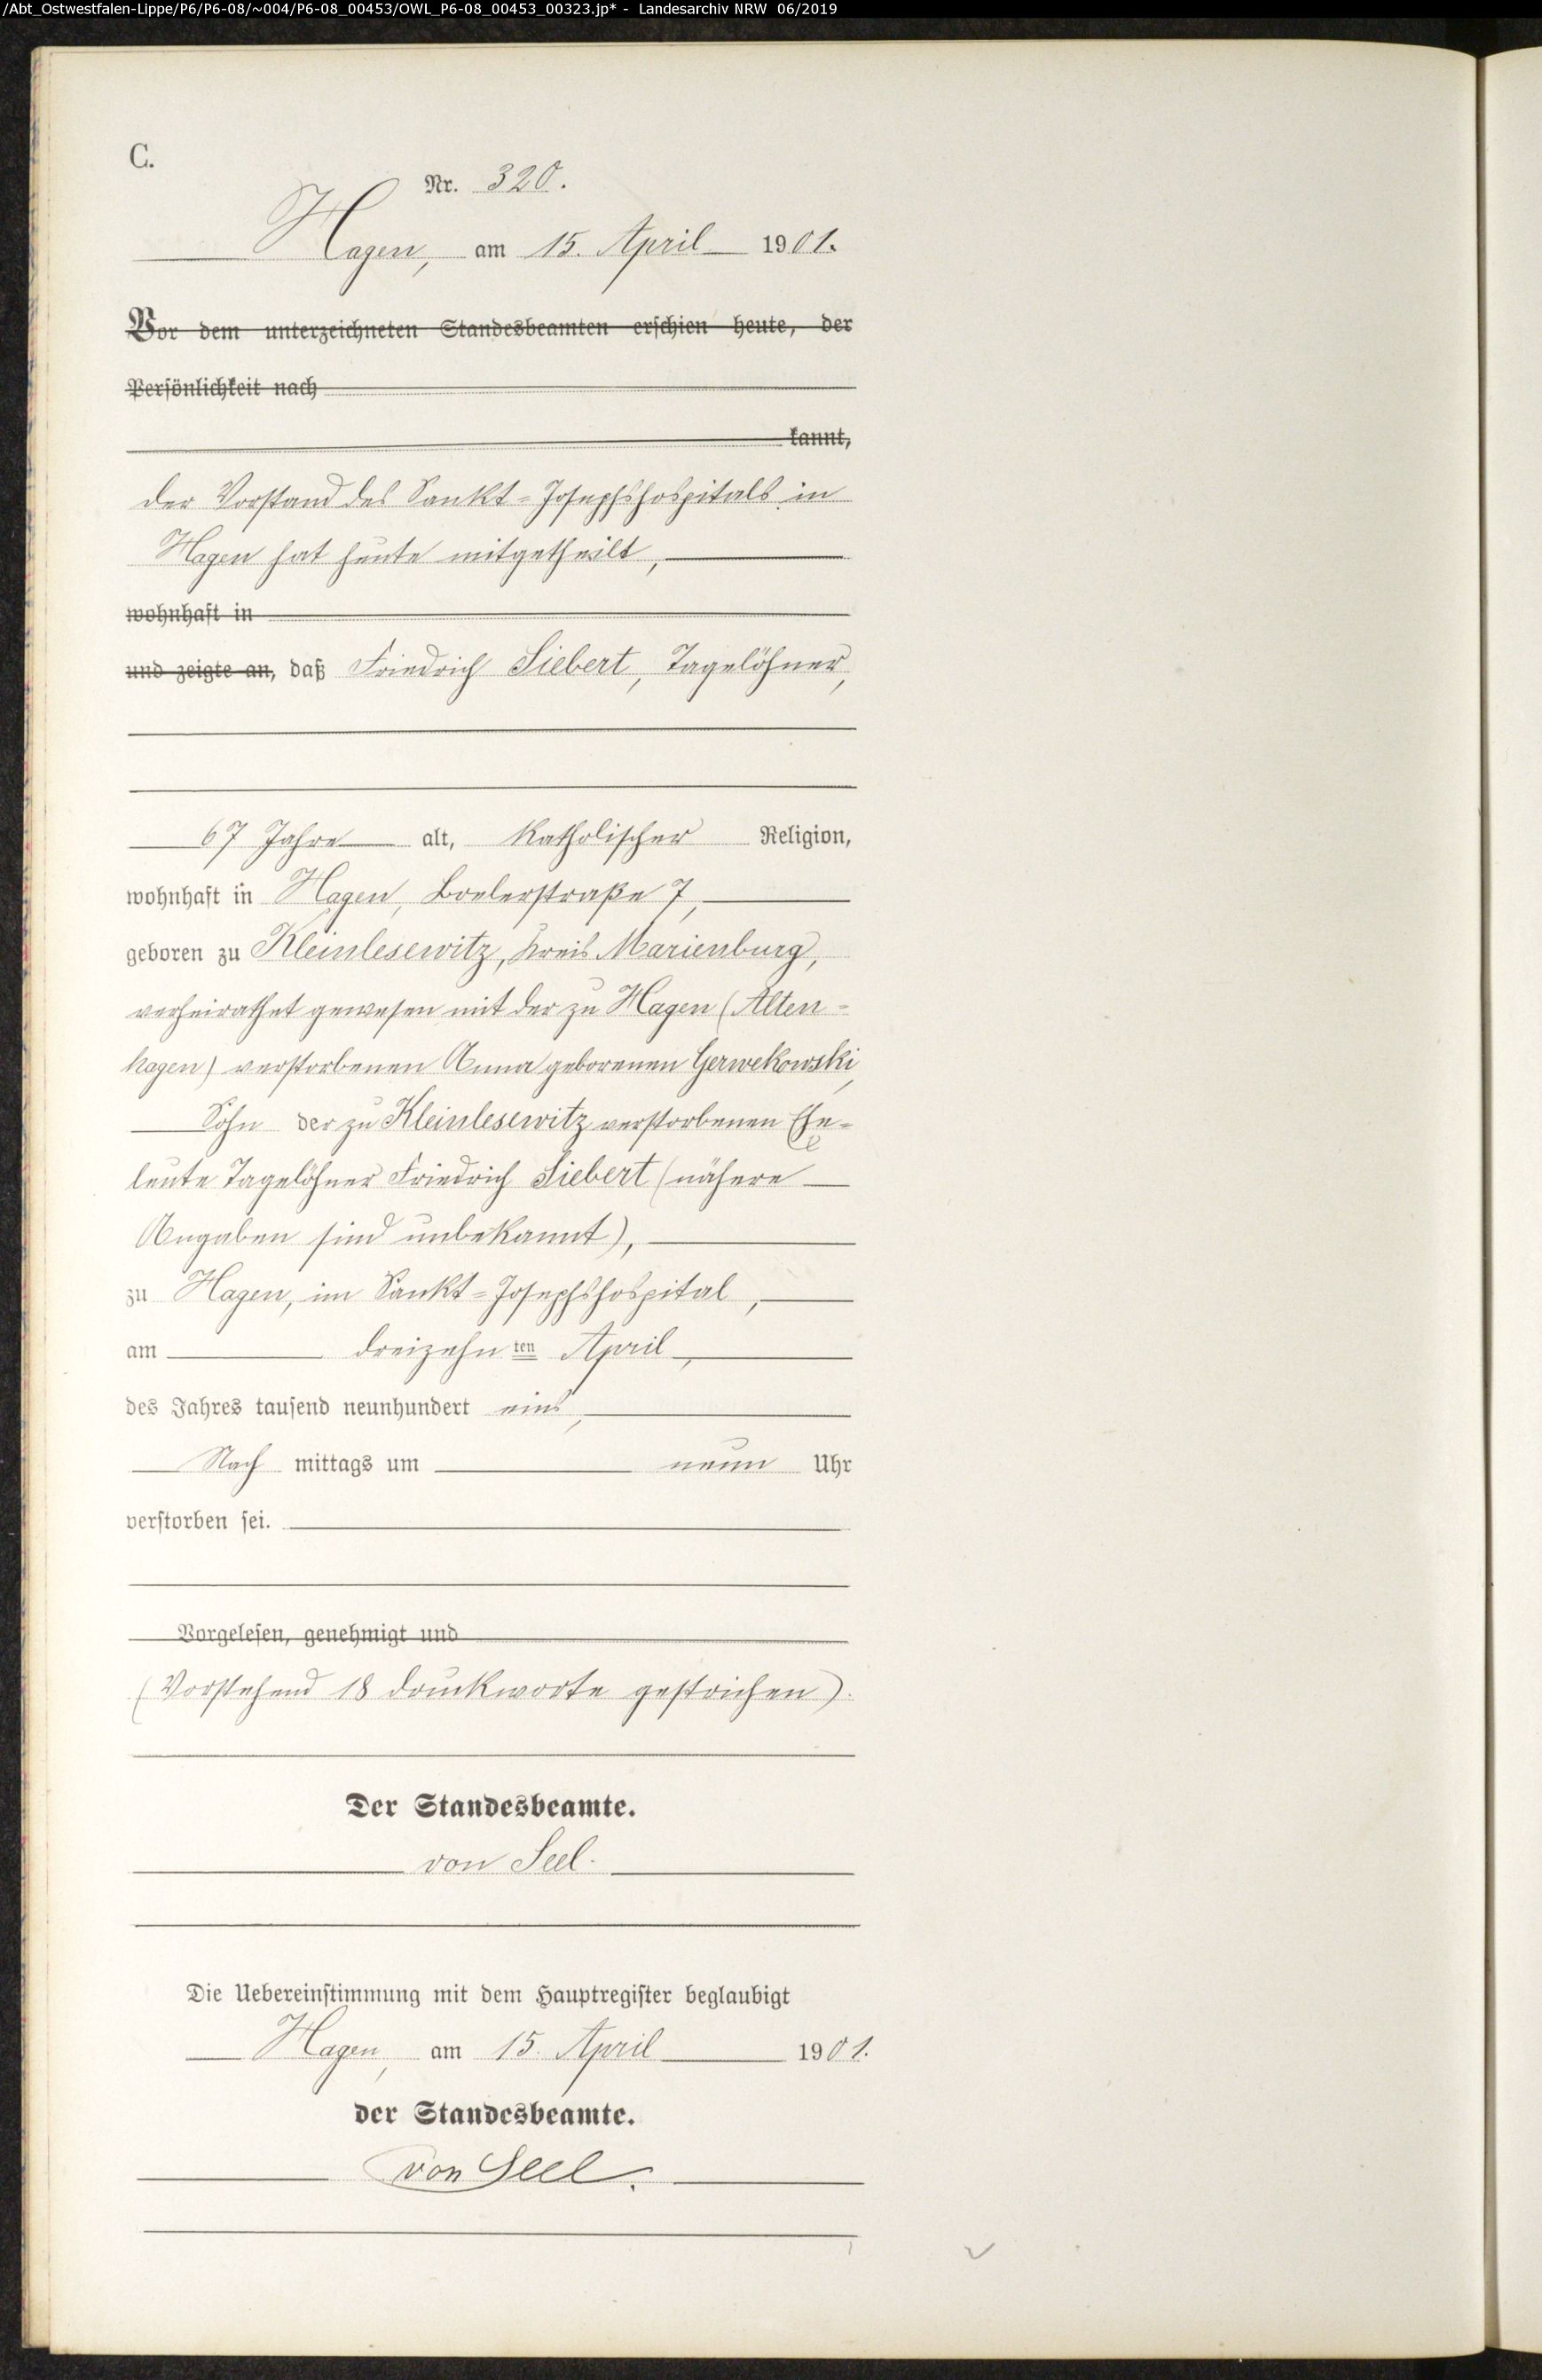 /Abt_Ostwestfalen-Lippe/P6/P6-08/~004/P6-08_00453/OWL_P6-08_00453_00323.jp* - Landesarchiv NRW 06/2019
C.
Nr. 320.
Hagen, am 15. April 1901.
Vor dem unterzeichneten Standesbeamten erschien heute, der
Persönlichkeit nach
kannt,
der Vorstand des Sankt-Josephshospitals in
Hagen hat heute mitgetheilt,
wohnhaft in
und zeigte an, daß Friedrich Siebert, Tagelöhner,
67 Jahre alt, katholischer Religion,
wohnhaft in Hagen, Boelerstraße 7,
geboren zu Kleinlesewitz, Kreis Marienburg,
verheirathet gewesen mit der zu Hagen (Alten-
hagen) verstorbenen Anna geborenen Gerwekowski,
Sohn der zu Kleinlesewitz verstorbenen Ehe-
leute Tagelöhner Friedrich Siebert (nähere
Angaben sind unbekannt),
zu Hagen, im Sankt-Josephshospital,
am dreizehnten April,
des Jahres tausend neunhundert eins,
Nach mittags um neun Uhr
verstorben sei.
Vorgelesen, genehmigt und
(Vorstehend 18 Druckworte gestrichen).
Der Standesbeamte.
von Seel.
Die Uebereinstimmung mit dem Hauptregister beglaubigt
Hagen, am 15. April 1901.
der Standesbeamte.
von Seel.